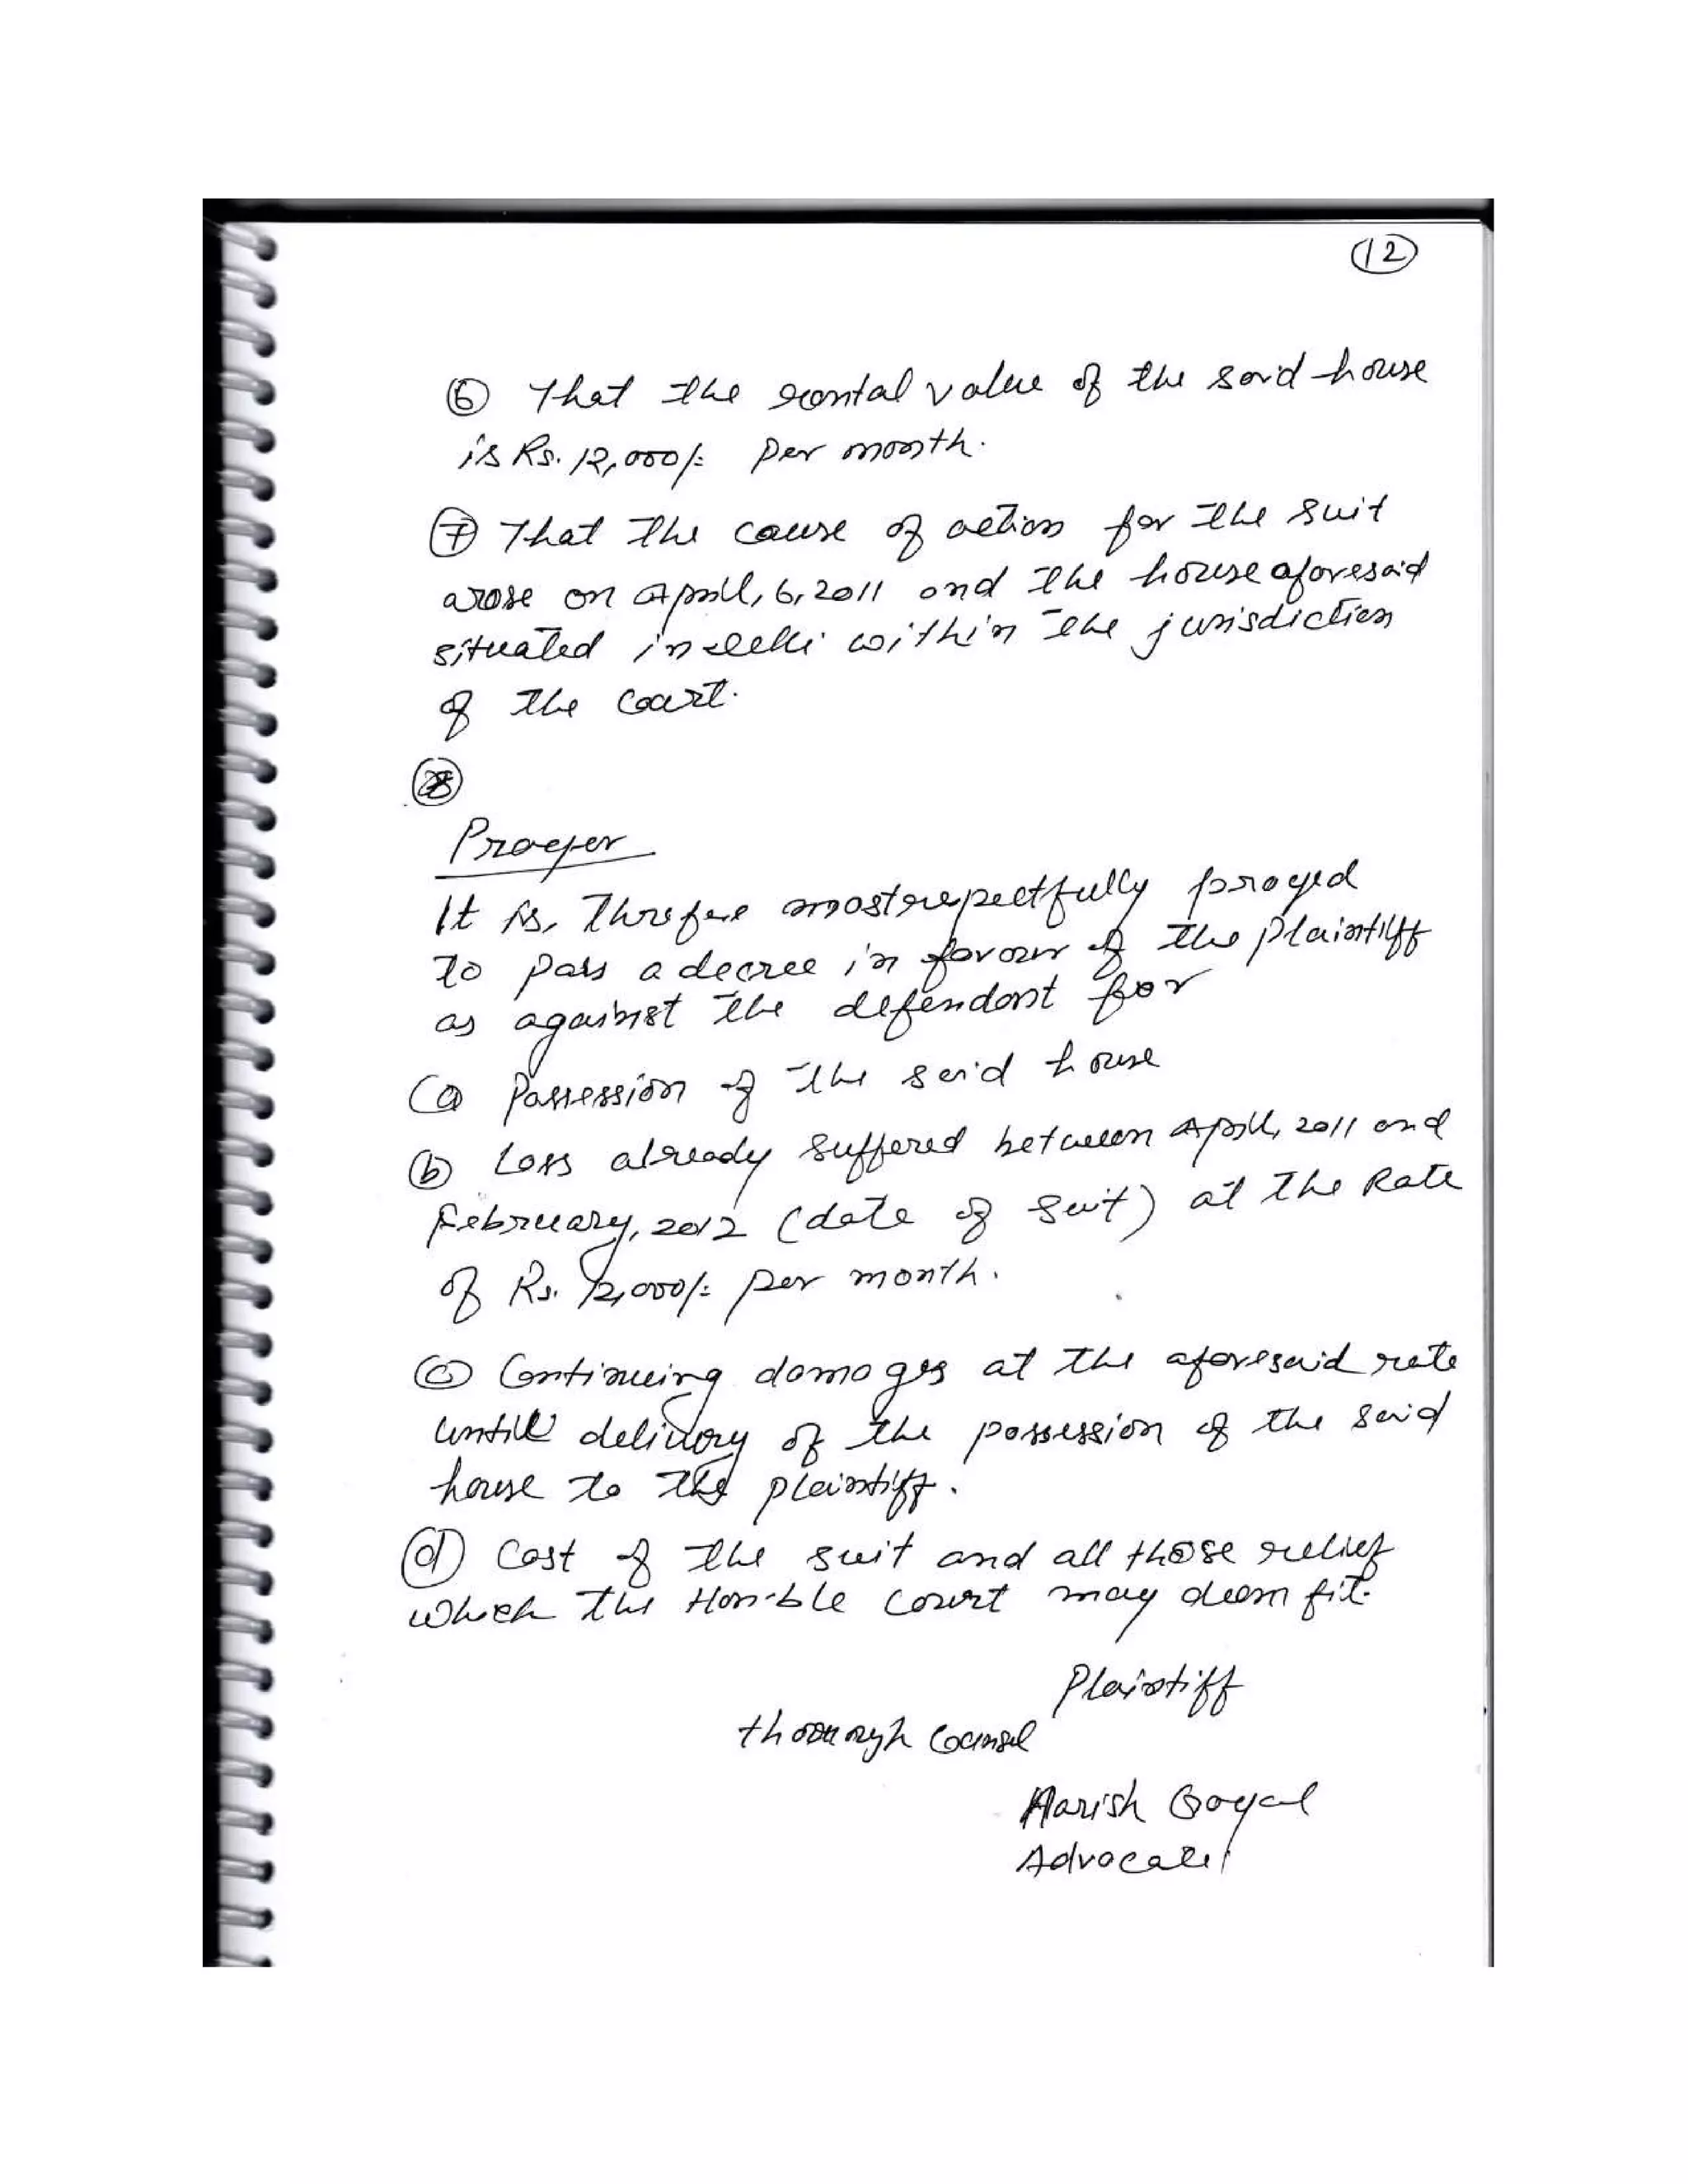 12
6 That the rental value of the said house
is Rs. 12,000/= Per month.
7 That the cause of action for the suit
arose on April, 6, 2011 and the house aforesaid
situated in Delhi within the jurisdiction
of the Court.
Prayer
It is, Threfore most respectfully prayed
to pass a decree in favour of the Plaintiff
as against the defendant for
(a) Possession of the said house
(b) Loss already suffered between April, 2011 and
February, 2012 (date of Suit) at the Rate
of Rs. 12,000/= per month.
(c) Continueing damages at the aforesaid rate
untill delivery of the possession of the said
house to the plaintiff.
(d) Cost of the suit and all those relief
which the Hon'ble Court may deem fit.
Plaintiff
through Counsel
Harish Goyal
Advocate